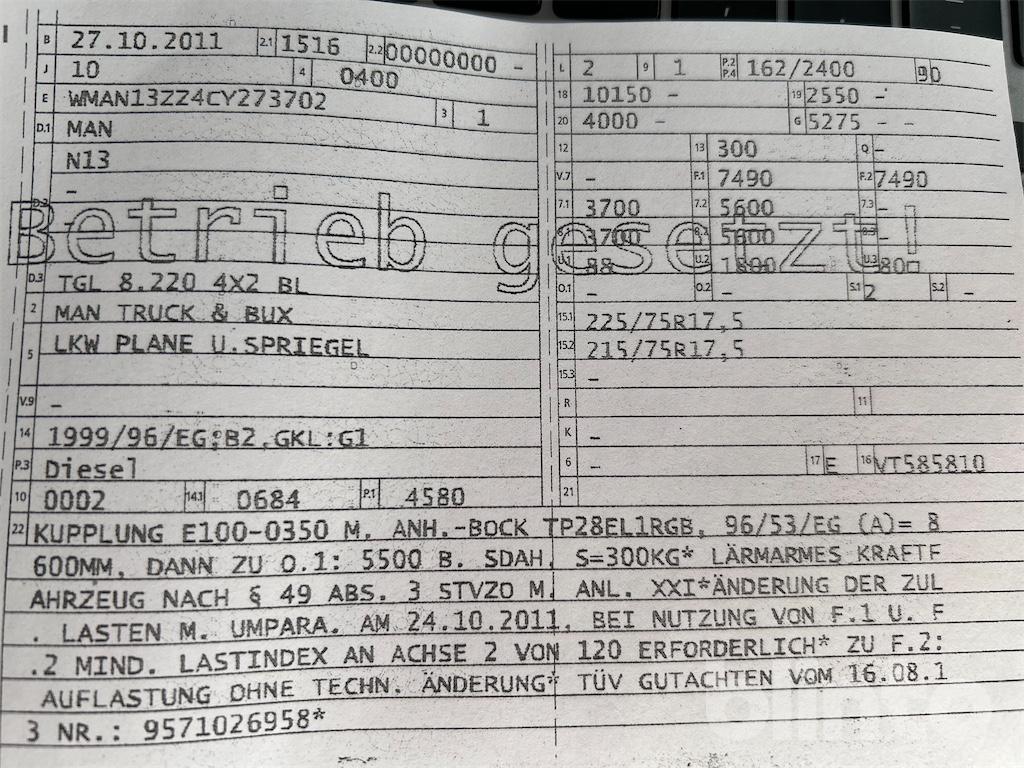 B 27.10.2011 2.1 1516 2.2 00000000 -
J 10 4 0400
E WMAN13ZZ4CY273702 3 1
D.1 MAN
N13
-
D.2 -
Betrieb gesetzt!
D.3 TGL 8.220 4X2 BL
2 MAN TRUCK & BUX
5 LKW PLANE U.SPRIEGEL
V.9 -
14 1999/96/EG;B2,GKL:G1
P.3 Diesel
10 0002 14.1 0684 P.1 4580
L 2 9 1 P.2 P.4 162/2400 90
18 10150 - 19 2550 -
20 4000 - G 5275 - -
12 13 300 Q -
V.7 - F.1 7490 F.2 7490
7.1 3700 7.2 5600 7.3 -
8.1 3700 8.2 5600 8.3 -
U.1 88 U.2 1800 U.3 80
O.1 - O.2 - S.1 2 S.2 -
15.1 225/75R17,5
15.2 215/75R17,5
15.3 -
R 11
K -
6 - 17 E 16 VT585810
21
22 KUPPLUNG E100-0350 M. ANH.-BOCK TP28EL1RGB, 96/53/EG (A)= 8
600MM, DANN ZU O.1: 5500 B. SDAH, S=300KG* LÄRMARMES KRAFTF
AHRZEUG NACH § 49 ABS. 3 STVZO M. ANL. XXI*ÄNDERUNG DER ZUL
. LASTEN M. UMPARA. AM 24.10.2011, BEI NUTZUNG VON F.1 U. F
.2 MIND. LASTINDEX AN ACHSE 2 VON 120 ERFORDERLICH* ZU F.2:
AUFLASTUNG OHNE TECHN. ÄNDERUNG* TÜV GUTACHTEN VOM 16.08.1
3 NR.: 9571026958*
blinto